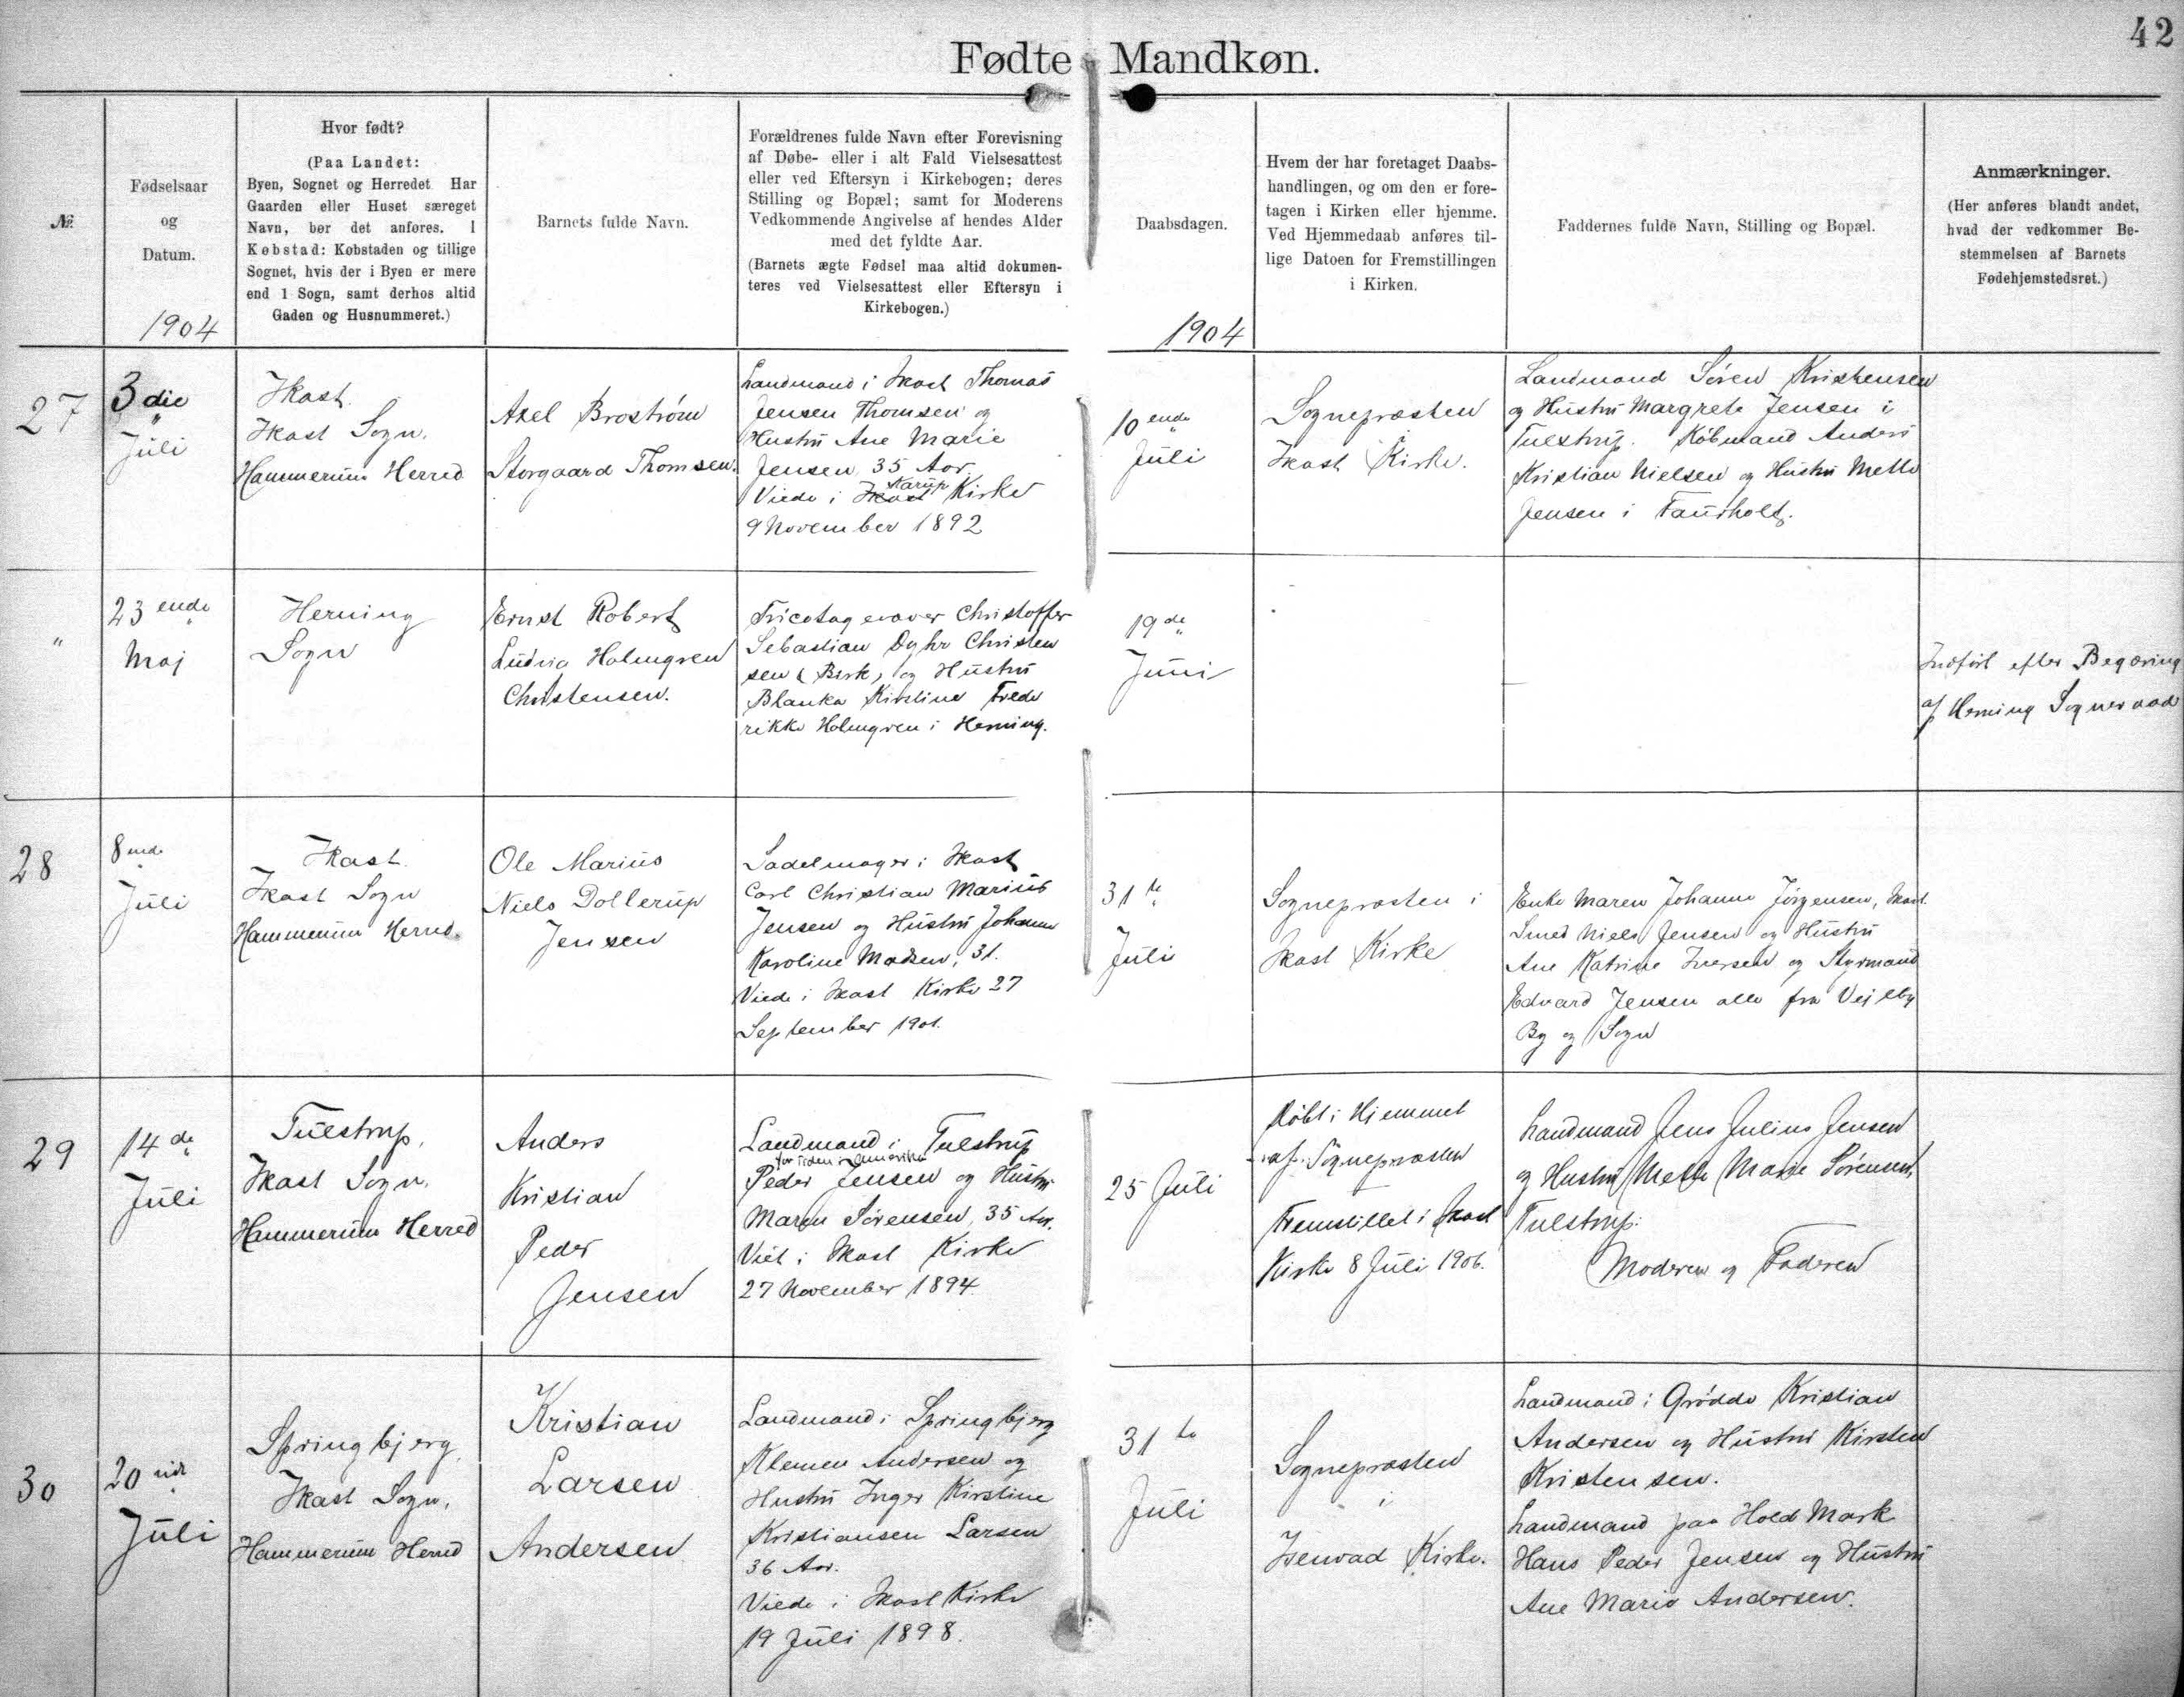 42
Fødte Mandkøn.
№
Fødselsaar
og
Datum.
1904
Hvor født?
(Paa Landet:
Byen, Sognet og Herredet. Har
Gaarden eller Huset særeget
Navn, bør det anføres. I
Købstad: Købstaden og tillige
Sognet, hvis der i Byen er mere
end 1 Sogn, samt derhos altid
Gaden og Husnummeret.)
Barnets fulde Navn.
Forældrenes fulde Navn efter Forevisning
af Døbe- eller i alt Fald Vielsesattest
eller ved Eftersyn i Kirkebogen; deres
Stilling og Bopæl; samt for Moderens
Vedkommende Angivelse af hendes Alder
med det fyldte Aar.
(Barnets ægte Fødsel maa altid dokumen-
teres ved Vielsesattest eller Eftersyn i
Kirkebogen.)
Daabsdagen.
1904
Hvem der har foretaget Daabs-
handlingen, og om den er fore-
tagen i Kirken eller hjemme.
Ved Hjemmedaab anføres til-
lige Datoen for Fremstillingen
i Kirken.
Faddernes fulde Navn, Stilling og Bopæl.
Anmærkninger.
(Her anføres blandt andet,
hvad der vedkommer Be-
stemmelsen af Barnets
Fødehjemstedsret.)
27
3die
Juli
Ikast
Ikast Sogn.
Hammerum Herred
Axel Brostrøm
Storgaard Thomsen.
Landmand i Ikast Thomas
Jensen Thomsen og
Hustru Ane Marie
Jensen 35 Aar.
Karup
Viede i Ikast Kirke
9 November 1892
10ende
Juli
Sognepræsten
Ikast Kirke.
Landmand Søren Kristensen
og Hustru Margrete Jensen i
Tulstrup. Købmand Anders
Kristian Nielsen og Hustru Mette
Jensen i Faurholt.
"
23ende
Maj
Herning
Sogn
Ernst Robert
Ludvig Holmgren
Christensen.
Tricotagevæver Christoffer
Sebastian Dyhr Christen
sen (Birk) og Hustru
Blanka Kirstine Frede
rikke Holmgren i Herning.
19de
Juni
Indført efter Begæring
af Herning Sogneraad
28
8ende
Juli
Ikast
Ikast Sogn
Hammerum Herred.
Ole Marius
Niels Dollerup
Jensen
Sadelmager i Ikast
Carl Christian Marius
Jensen og Hustru Johanne
Karoline Madsen, 31.
Viede i Ikast Kirke 27
September 1901.
31te
Juli
Sognepræsten i
Ikast Kirke
Enke Maren Johanne Jørgensen, Ikast.
Smed Niels Jensen og Hustru
Ane Katrine Iversen og Styrmand
Edvard Jensen alle fra Vejlby
By og Sogn
29
14de
Juli
Tulstrup,
Ikast Sogn.
Hammerum Herred
Anders
Kristian
Peder
Jensen
Landmand i Tulstrup
for Tiden i Amerika
Peder Jensen og Hustru
Maren Sørensen, 35 Aar.
Viet i Ikast Kirke
27 November 1894
25 Juli
Døbt i Hjemmet
af Sognepræsten
Fremstillet i Ikast
Kirke 8 Juli 1906.
Landmand Jens Julius Jensen
og Hustru Mette Marie Sørensen,
Tulstrup.
Moderen og Faderen
30
20nde
Juli
Springbjerg,
Ikast Sogn,
Hammerum Herred
Kristian
Larsen
Andersen
Landmand i Springbjerg
Klemen Andersen og
Hustru Inger Kirstine
Kristiansen Larsen
36 Aar.
Viede i Ikast Kirke
19 Juli 1898.
31te
Juli
Sognepræsten
i
Isenvad Kirke.
Landmand i Grødde Kristian
Andersen og Hustru Kirsten
Kristensen.
Landmand paa Hold Mark
Hans Peder Jensen og Hustru
Ane Marie Andersen.